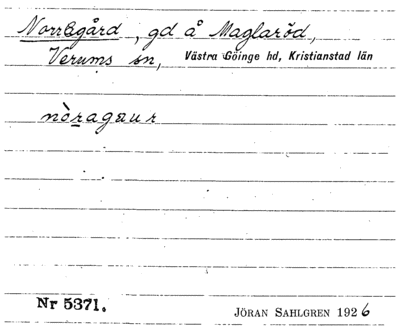 Norregård, gd å Maglaröd,
Verums sn, Västra Göinge hd, Kristianstad län
Nr 5371.
JÖRAN SAHLGREN 1926